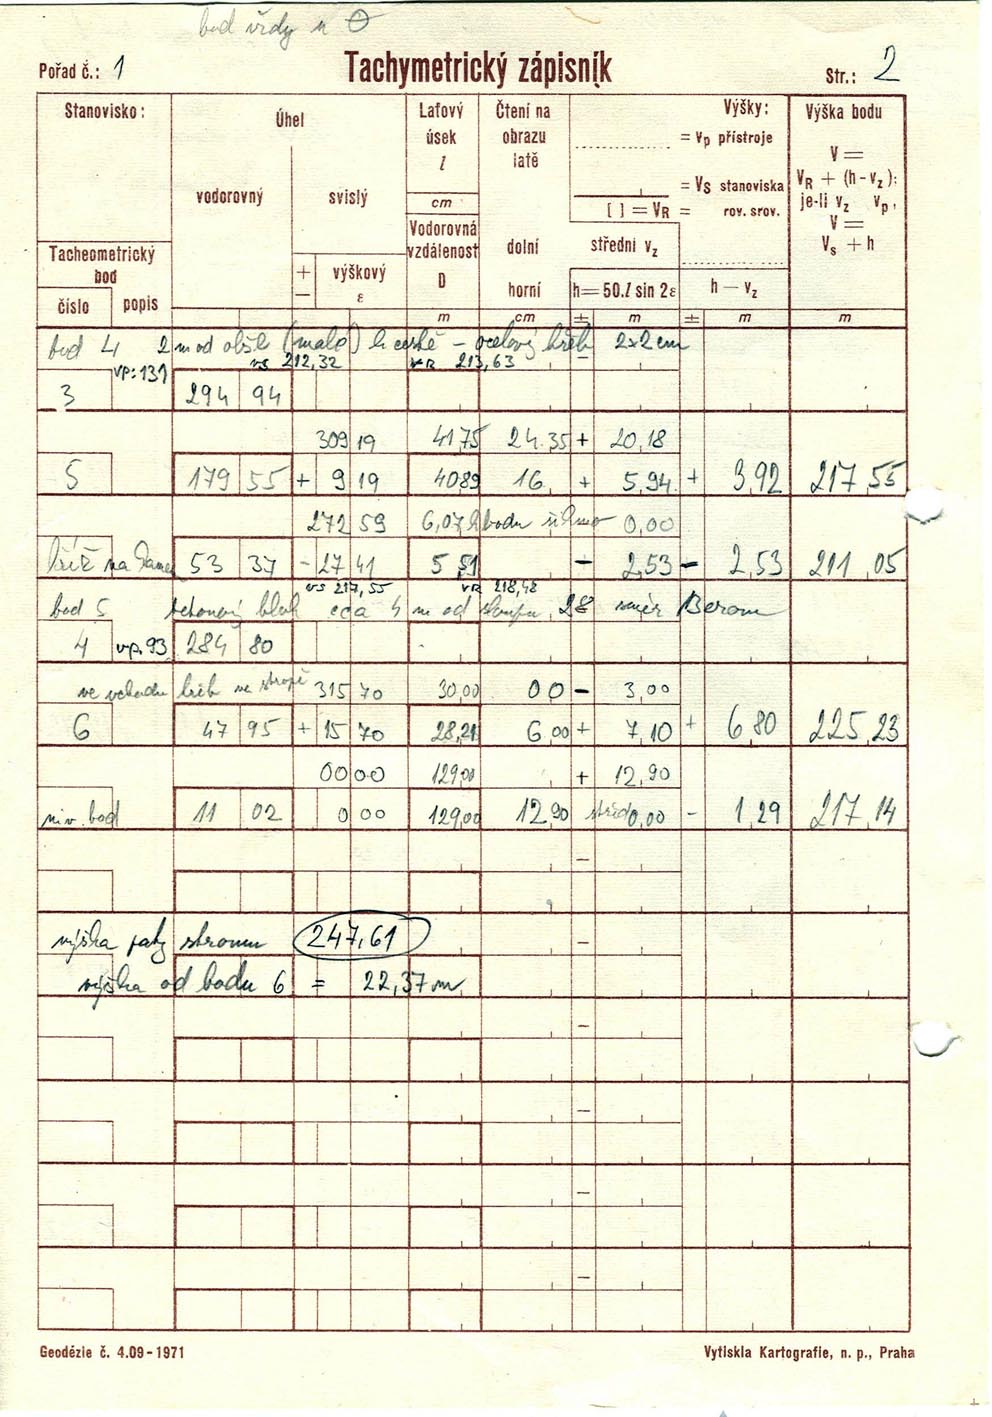 bod vždy n 0
Pořad č.: 1
Tachymetrický zápisník
Str.: 2
Stanovisko:
Úhel
Laťový úsek l
Čtení na obrazu latě
Výšky:
Výška bodu
= Vp přístroje
V =
VR + (h-vz):
= Vs stanoviska
je-li vz vp,
vodorovný
svislý
cm
[ ] = VR = rov. srov.
V =
Vodorovná vzdálenost D
Vs + h
Tacheometrický bod
dolní
střední vz
+ −
výškový ε
číslo
popis
horní
h=50.l sin 2ε
h − vz
m
cm
±
m
±
m
m
bod 4 2 m od (malé) – ocelový hřeb 2×2 cm
vs 212,32 VR 213,63
vp: 131
3 294 94
309 19 41 75 24.35 + 20,18
5 179 55 + 9 19 40 89 16 + 5,94 + 3,92 217,55
272 59 6,07 bodu 0,00
na 53 37 - 27 41 5 51 - 2,53 - 2,53 211 05
vs 217,55 VR 218,48
bod 5 betonový blok cca 4 m od sloupu 28 směr Beroun
4 vp.93 284 80
ve vchodu hřeb ve stropě 315 70 30,00 00 - 3,00
6 47 95 + 15 70 28,21 6,00 + 7,10 + 6,80 225,23
00 00 129,00 + 12,90
niv. bod 11 02 0 00 129,00 12,90 střed 0,00 - 1,29 217,14
výška paty stromu 247,61
výška od bodu 6 = 22,37 m
Geodézie č. 4.09-1971
Vytiskla Kartografie, n. p., Praha